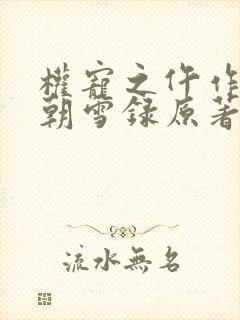 權寵之仵作
朝雪録原著
流水無名